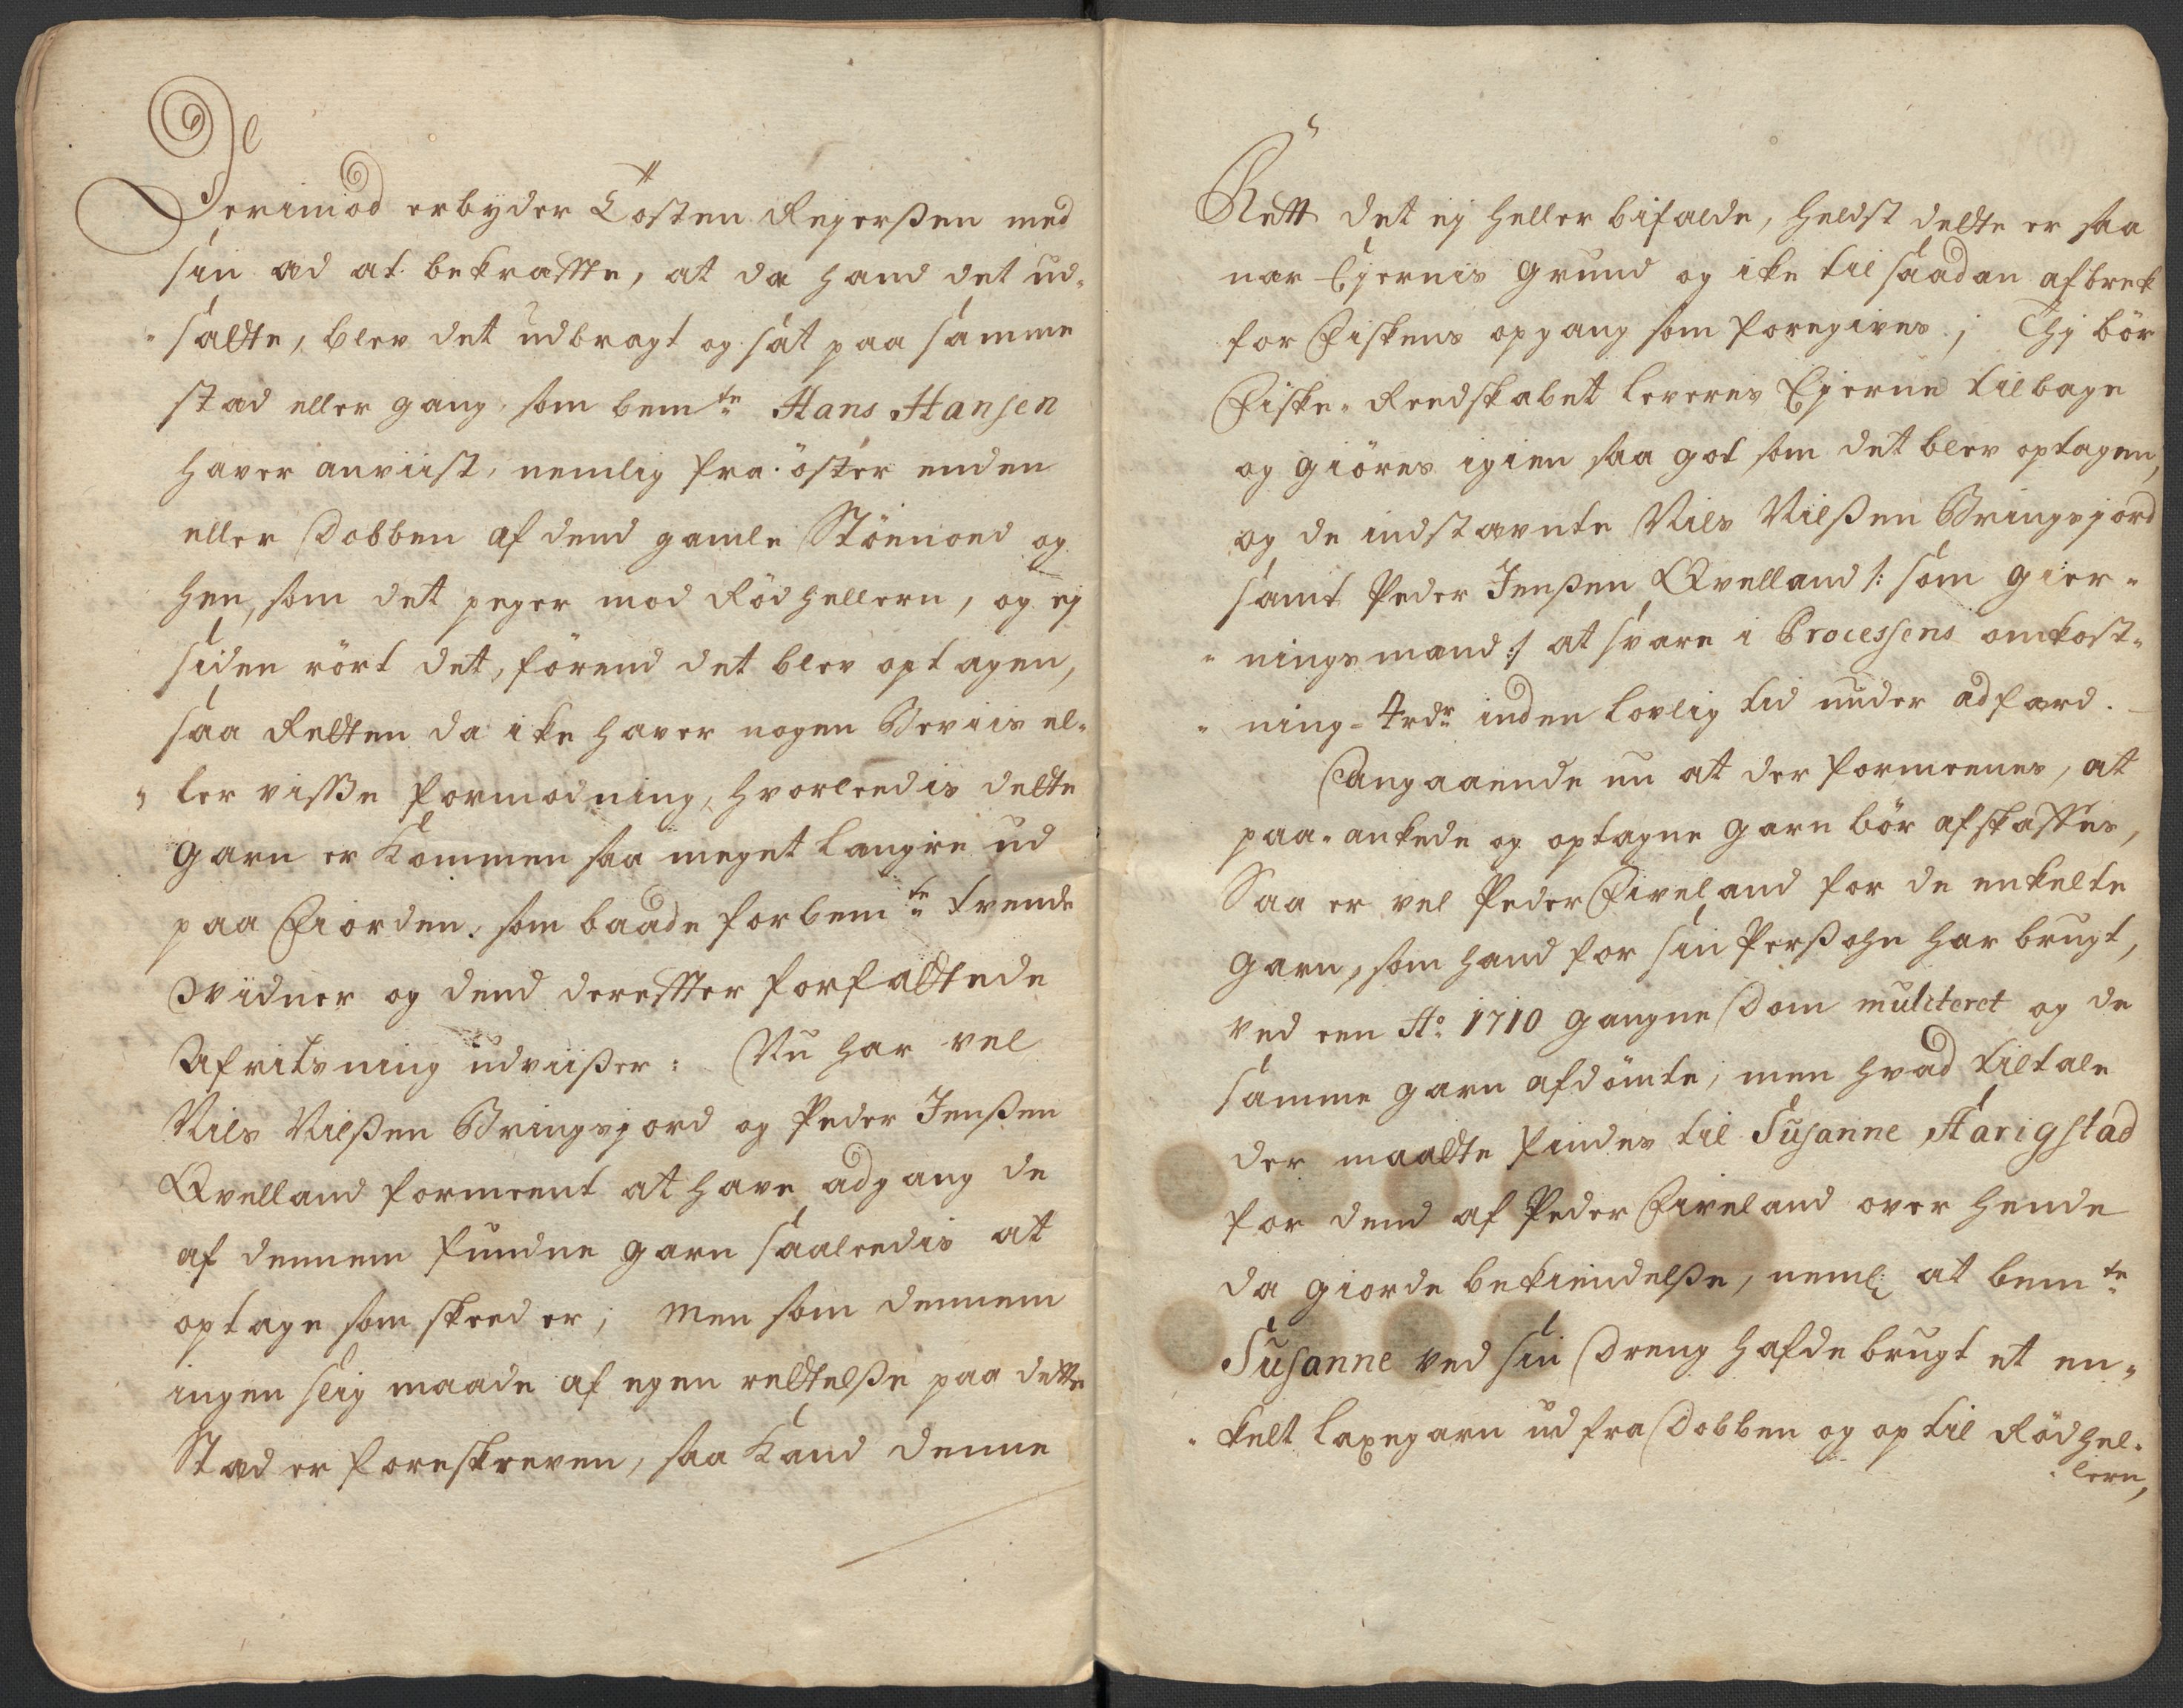 Derimod erbyder Tosten Rejerßen med
sin æd at bekræffte, at da hand det ud-
-sadte, blev det udbragt og sat paa samme
stæd eller gang, som bemte Hans Hansen
haver anviist, nemlig fra öster enden
eller Dobben af dend gamle Stöenoed og
hen, som det peger mod Rödhellern, og ej
siden rört det, förend det blev optagen,
saa Retten da ike haver nogen Beviis el-
-ler visse formodning, hvorleedis dette
garn er kommen saa meget længre ud
paa Fiorden, som baade forbemte trende
vidner og dend dereffter forfattede
Afritsning udviißer: Nu har vel
Nils Nilßen Bringsjord og Peder Jenßen
Qvelland formeent at have adgang de
af dennem fundne garn saaleedis at
optage som skeed er; men som dennem
ingen slig maade af egen rettelße paa dette
Stæd er foreskreven, saa kand denne
Rett det ej heller bifalde, heldst dette er saa
nær Ejernis grund og ike til saadan afbrek
for Fiskens opgang som foregives; Thj bör
Fiske-Reedskabet leveres Ejerne tilbage
og giöres igien saa got som det blev optagen,
og de indstævnte Nils Nilßen Bringsjord
samt Peder Jenßen Qvelland /: som gier-
-ningsmænd :/ at svare i Processens omkost-
-ning 4rdr inden lovlig tid under adfærd.
Angaaende nu at der formeenes, at
paa-ankede og optagne garn bör afskaffes,
Saa er vel Peder Fiveland for de enkelte
garn, som hand for sin Perßohn har brugt,
ved een Ao 1710 gangne Dom mulcteret og de
samme garn afdömte, men hvad tiltale
der maatte findes til Susanne Harigstad
for dend af Peder Fiveland over hende
da giorde bekiendelße, neml: at bemte
Susanne ved sin Dreng hafde brugt et en-
-kelt laxegarn ud fra Dobben og op til Rödhel-
-lern,